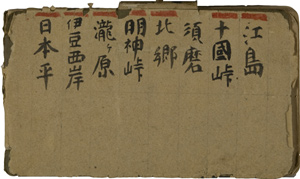 江島
十國峠
須磨
北郷
明神峠
瀧ヶ原
伊豆西岸
日本平